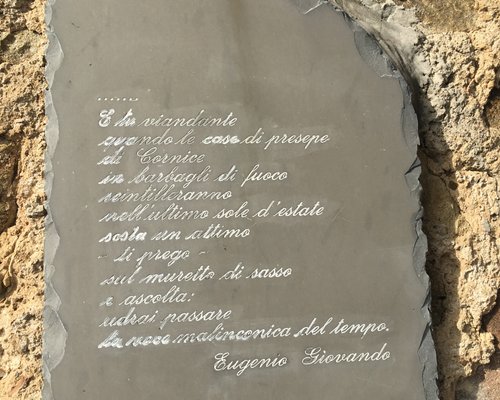 .......
E tu viandante
quando le case di presepe
di Cornice
in barbagli di fuoco
scintilleranno
nell'ultimo sole d'estate
sosta un attimo
- ti prego -
sul muretto di sasso
e ascolta:
udrai passare
la voce malinconica del tempo.
Eugenio Giovando